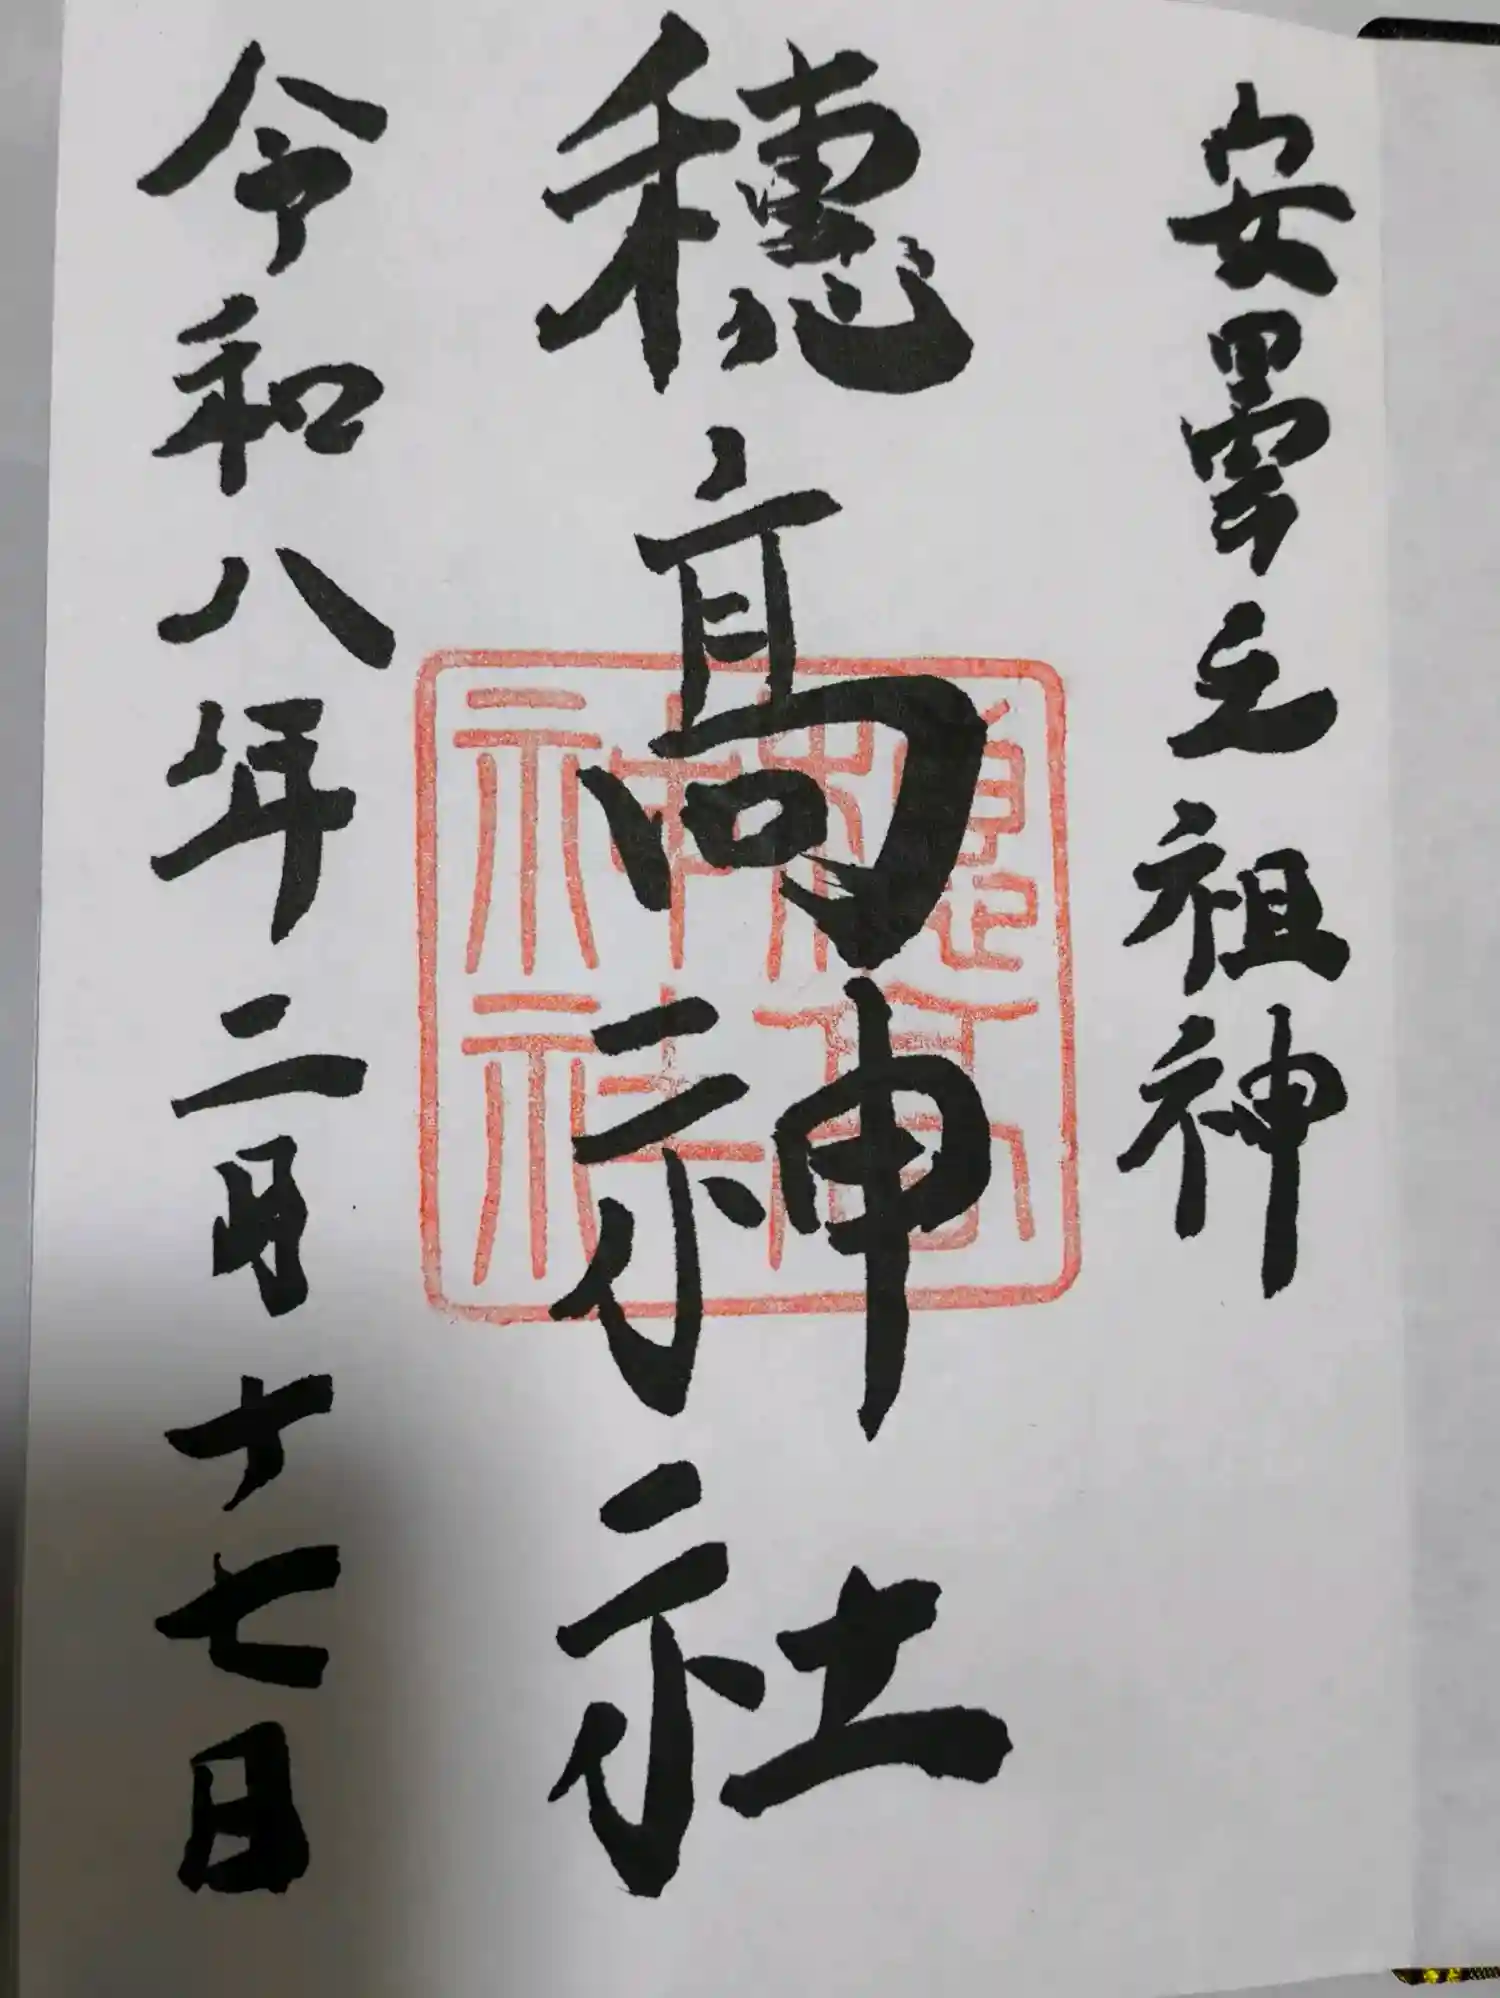 安曇之祖神
穂髙神社
令和八年二月十七日
穂高
神社